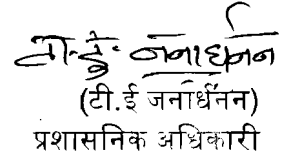 टी.ई. जनार्धनन
(टी.ई जनार्धनन)
प्रशासनिक अधिकारी